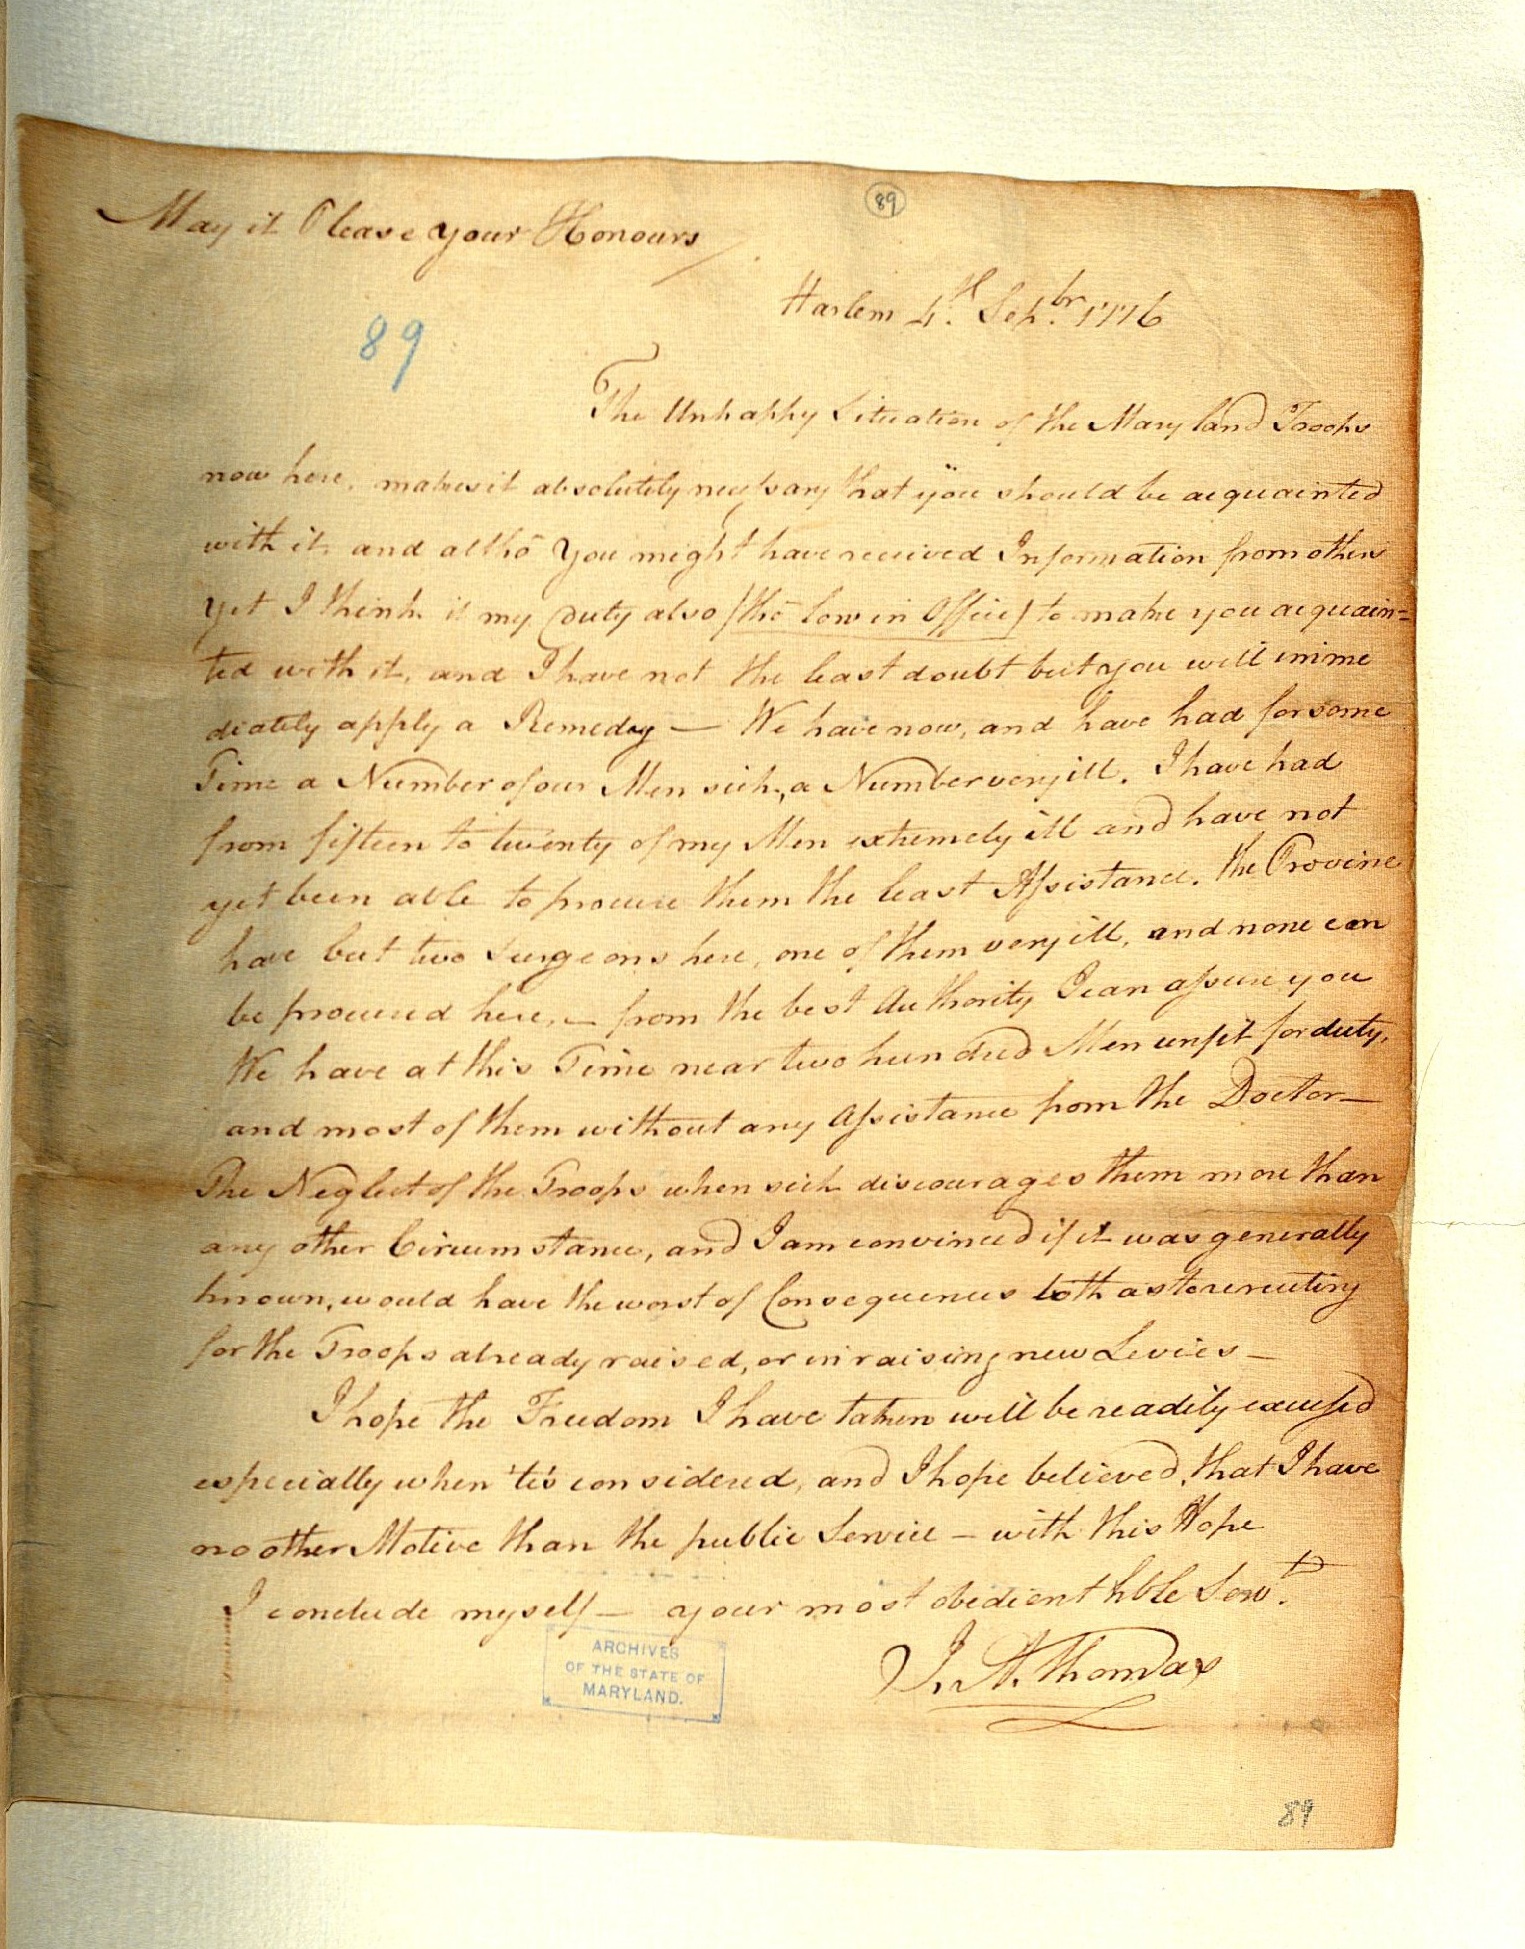 89
May it Please your Honours
Harlem 4th Sepbr. 1776
89
The Unhappy Situation of the Maryland Troops
now here, makes it absolutely necessary that you should be acquainted
with it, and altho You might have received Information from others
yet I think it my Duty also (tho low in Office) to make you acquain=
ted with it, and I have not the least doubt but you will imme
diately apply a Remedy — We have now, and have had for some
Time a Number of our Men sick, a Number very ill. I have had
from fifteen to twenty of my Men extremely ill and have not
yet been able to procure them the least Assistance. the Province
have but two Surgeons here, one of them very ill, and none can
be procured here, — from the best Authority I can assure you
We have at this Time near two hundred Men unfit for duty,
and most of them without any Assistance from the Doctor —
The Neglect of the Troops when sick discourages them more than
any other Circumstance, and I am convinced if it was generally
known, would have the worst of Consequences both as to recruiting
for the Troops already raised, or in raising new Levies —
I hope the Freedom I have taken will be readily excused
especially when 'tis considered, and I hope believed, that I have
no other Motive than the public Service — with this Hope
I conclude myself — your most obedient hble Servt.
J. A. Thomas
ARCHIVES
OF THE STATE OF
MARYLAND.
89